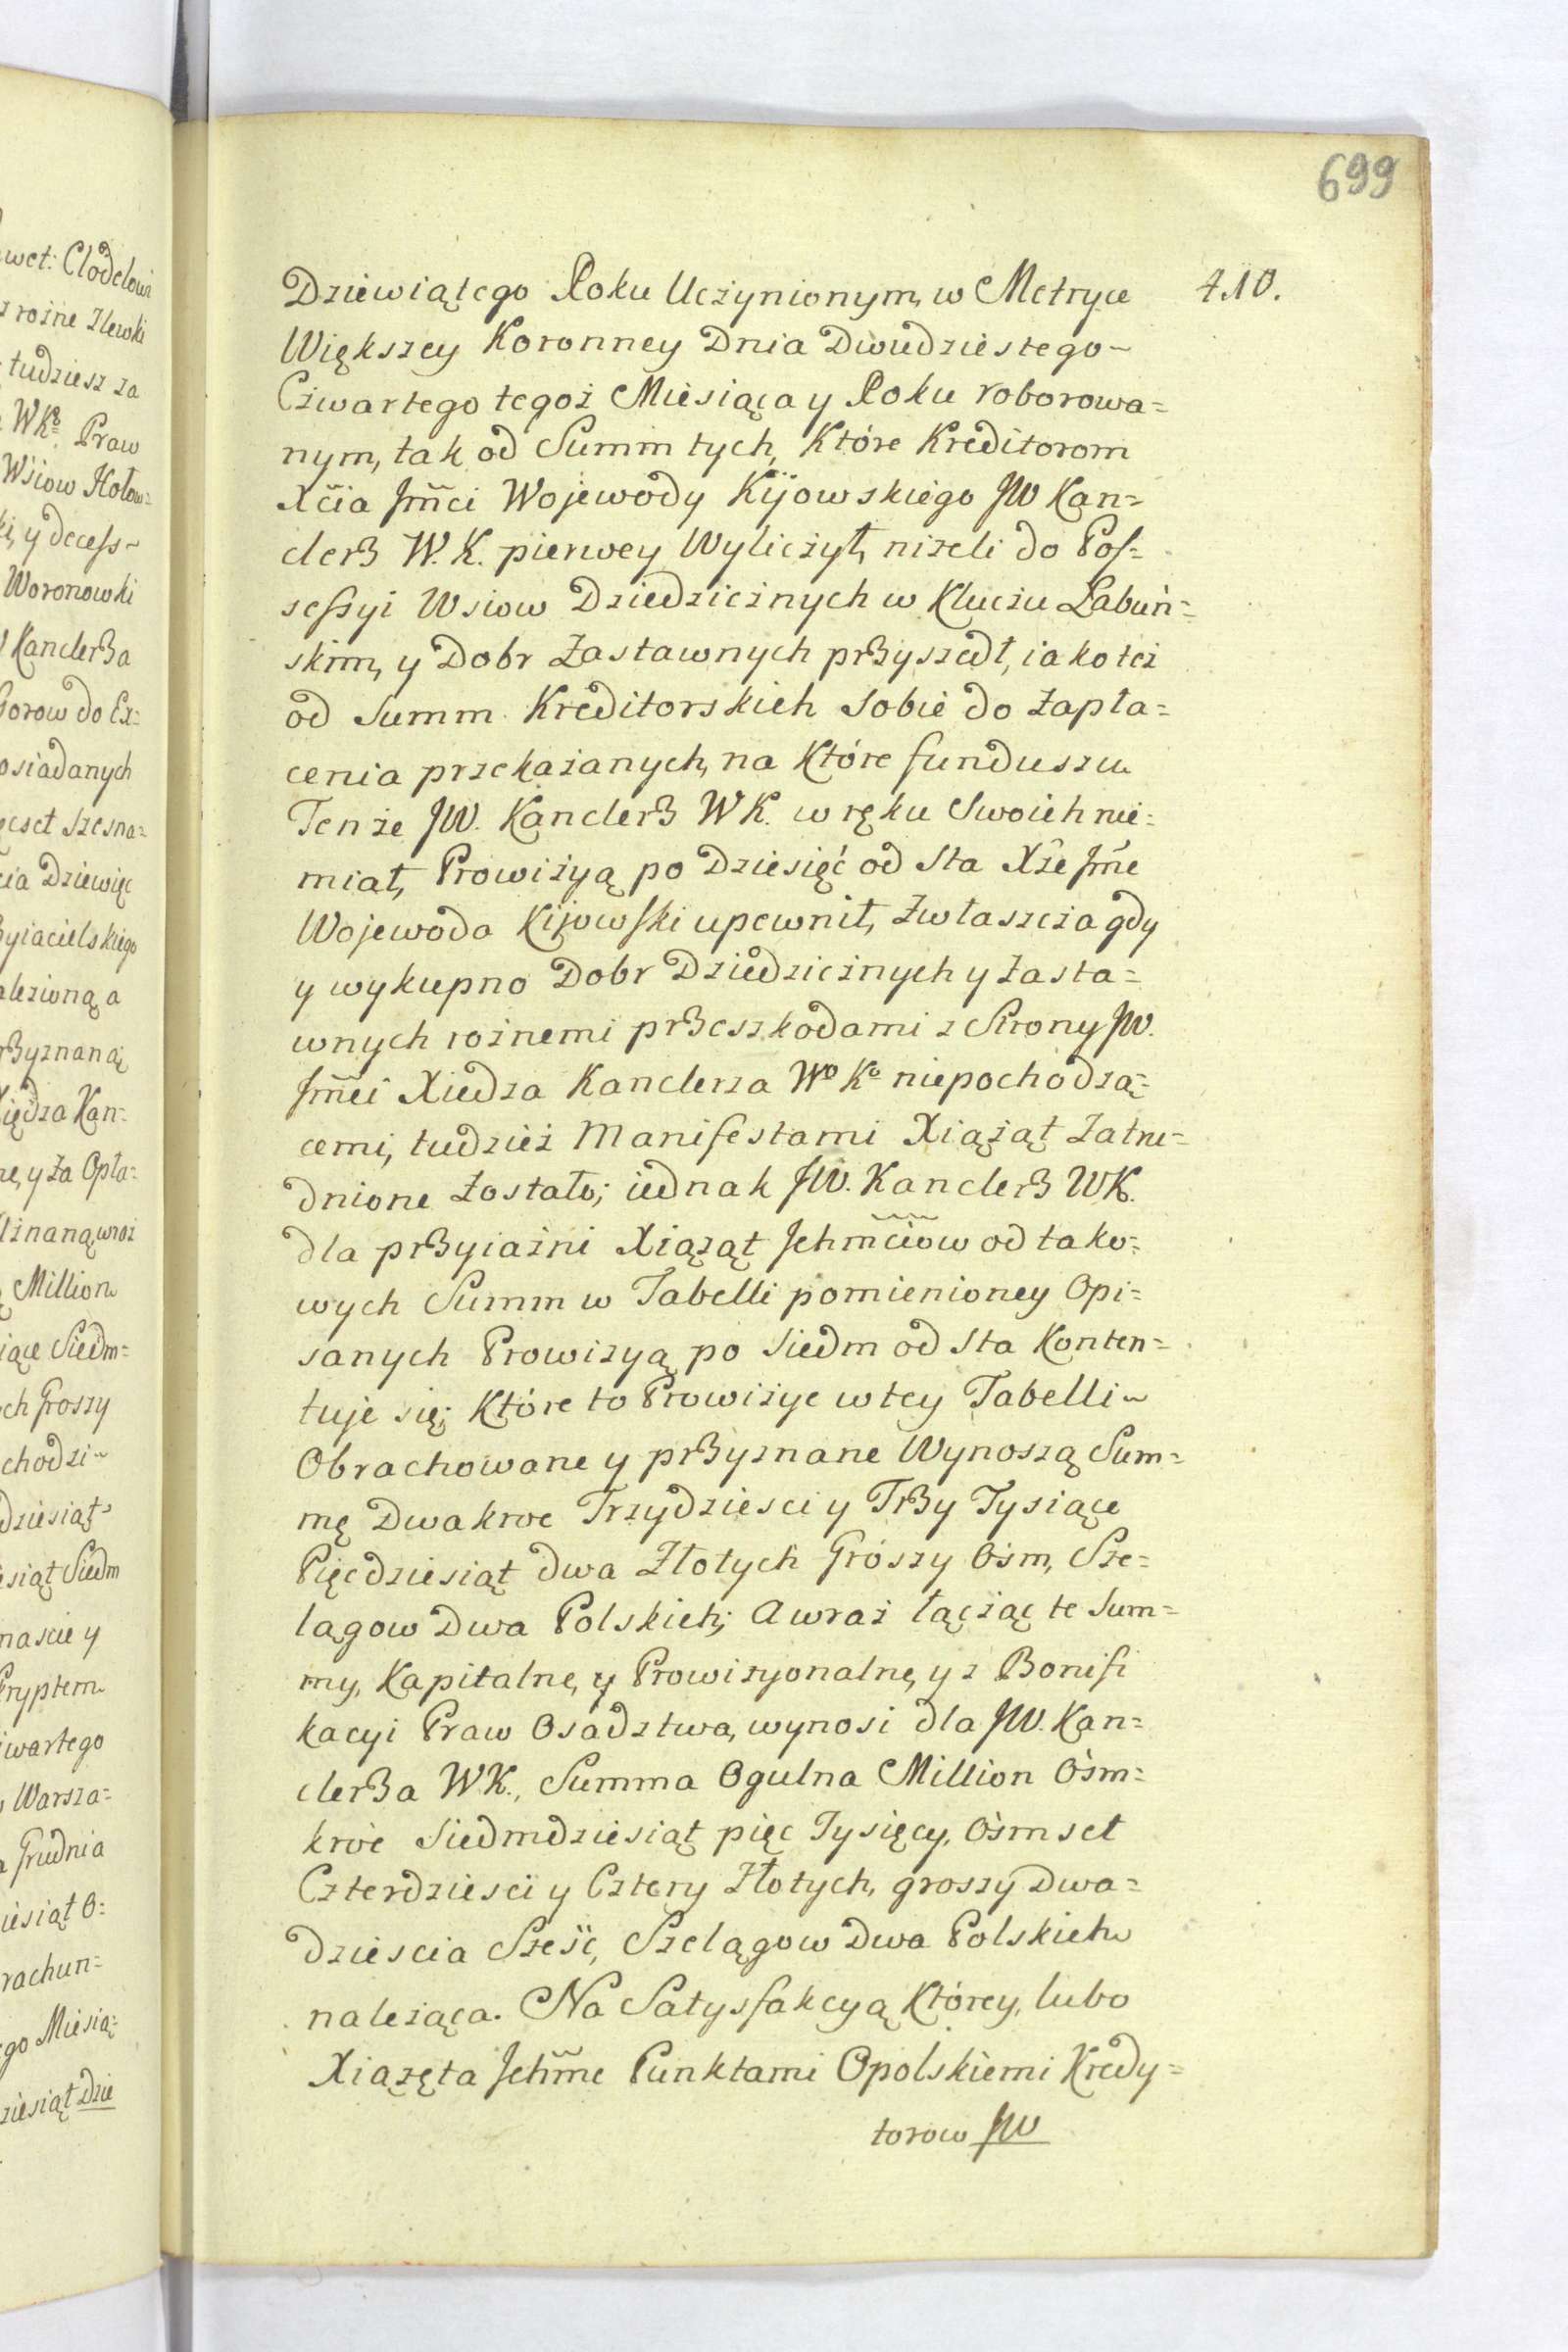 699
410.
Dziewiątego Roku Uczynionym, w Metryce
Większey Koronney Dnia Dwudziestego~
Czwartego tegoż Miesiąca y Roku roborowa=
nym, tak od Summ tych, Które Kreditorom
Xcia Jmci Wojewody Kijowskiego JW Kan=
clerz W. K. pierwey Wyliczył, niżeli do Pos=
sessyi Wsiow Dziedzicznych w Kluczu Łabuń=
skim, y Dobr Zastawnych przyszedł, iako też
od Summ Kreditorskich sobie do Zapła=
cenia przekazanych, na Które funduszu
Tenże JW. Kanclerz WK. w ręku Swoich nie=
miał, Prowizyą po Dziesięć od Sta Xże Jmc
Wojewoda Kijowski upewnił, Zwłaszcza gdy
y wykupno Dobr Dziedzicznych y Zasta=
wnych rożnemi przeszkodami z Strony JW.
Jmci Xiedza Kanclerza Wo Ko niepochodzą=
cemi, tudzież Manifestami Xiążąt Zatru=
dnione Zostało; iednak JW. Kanclerz WK.
dla przyiaźni Xiążąt Jchmciow od tako=
wych Summ w Tabelli pomienioney Opi=
sanych Prowizyą po Siedm od Sta Konten=
tuje się; Które to Prowizye w tey Tabelli~
Obrachowane y przyznane Wynoszą Sum=
mę Dwakroc Trzydziesci y Trzy Tysiące
Pięcdziesiąt dwa Złotych Groszy Ośm, Sze=
lągow Dwa Polskich; a wraz łącząc te Sum=
my, Kapitalne, y Prowizyonalne, y z Bonifi
kacyi Praw Osadztwa, wynosi dla JW. Kan=
clerza WK., Summa Ogulna Million Ośm=
kroc Siedmdziesiąt pięc Tysięcy, Ośmset
Czterdziesci y Cztery Złotych, groszy Dwa=
dziescia Sześc, Szelągow Dwa Polskich
należąca. Na Satysfakcyą Którey, lubo
Xiążęta Jchmc Punktami Opolskiemi Kredy=
torow JW